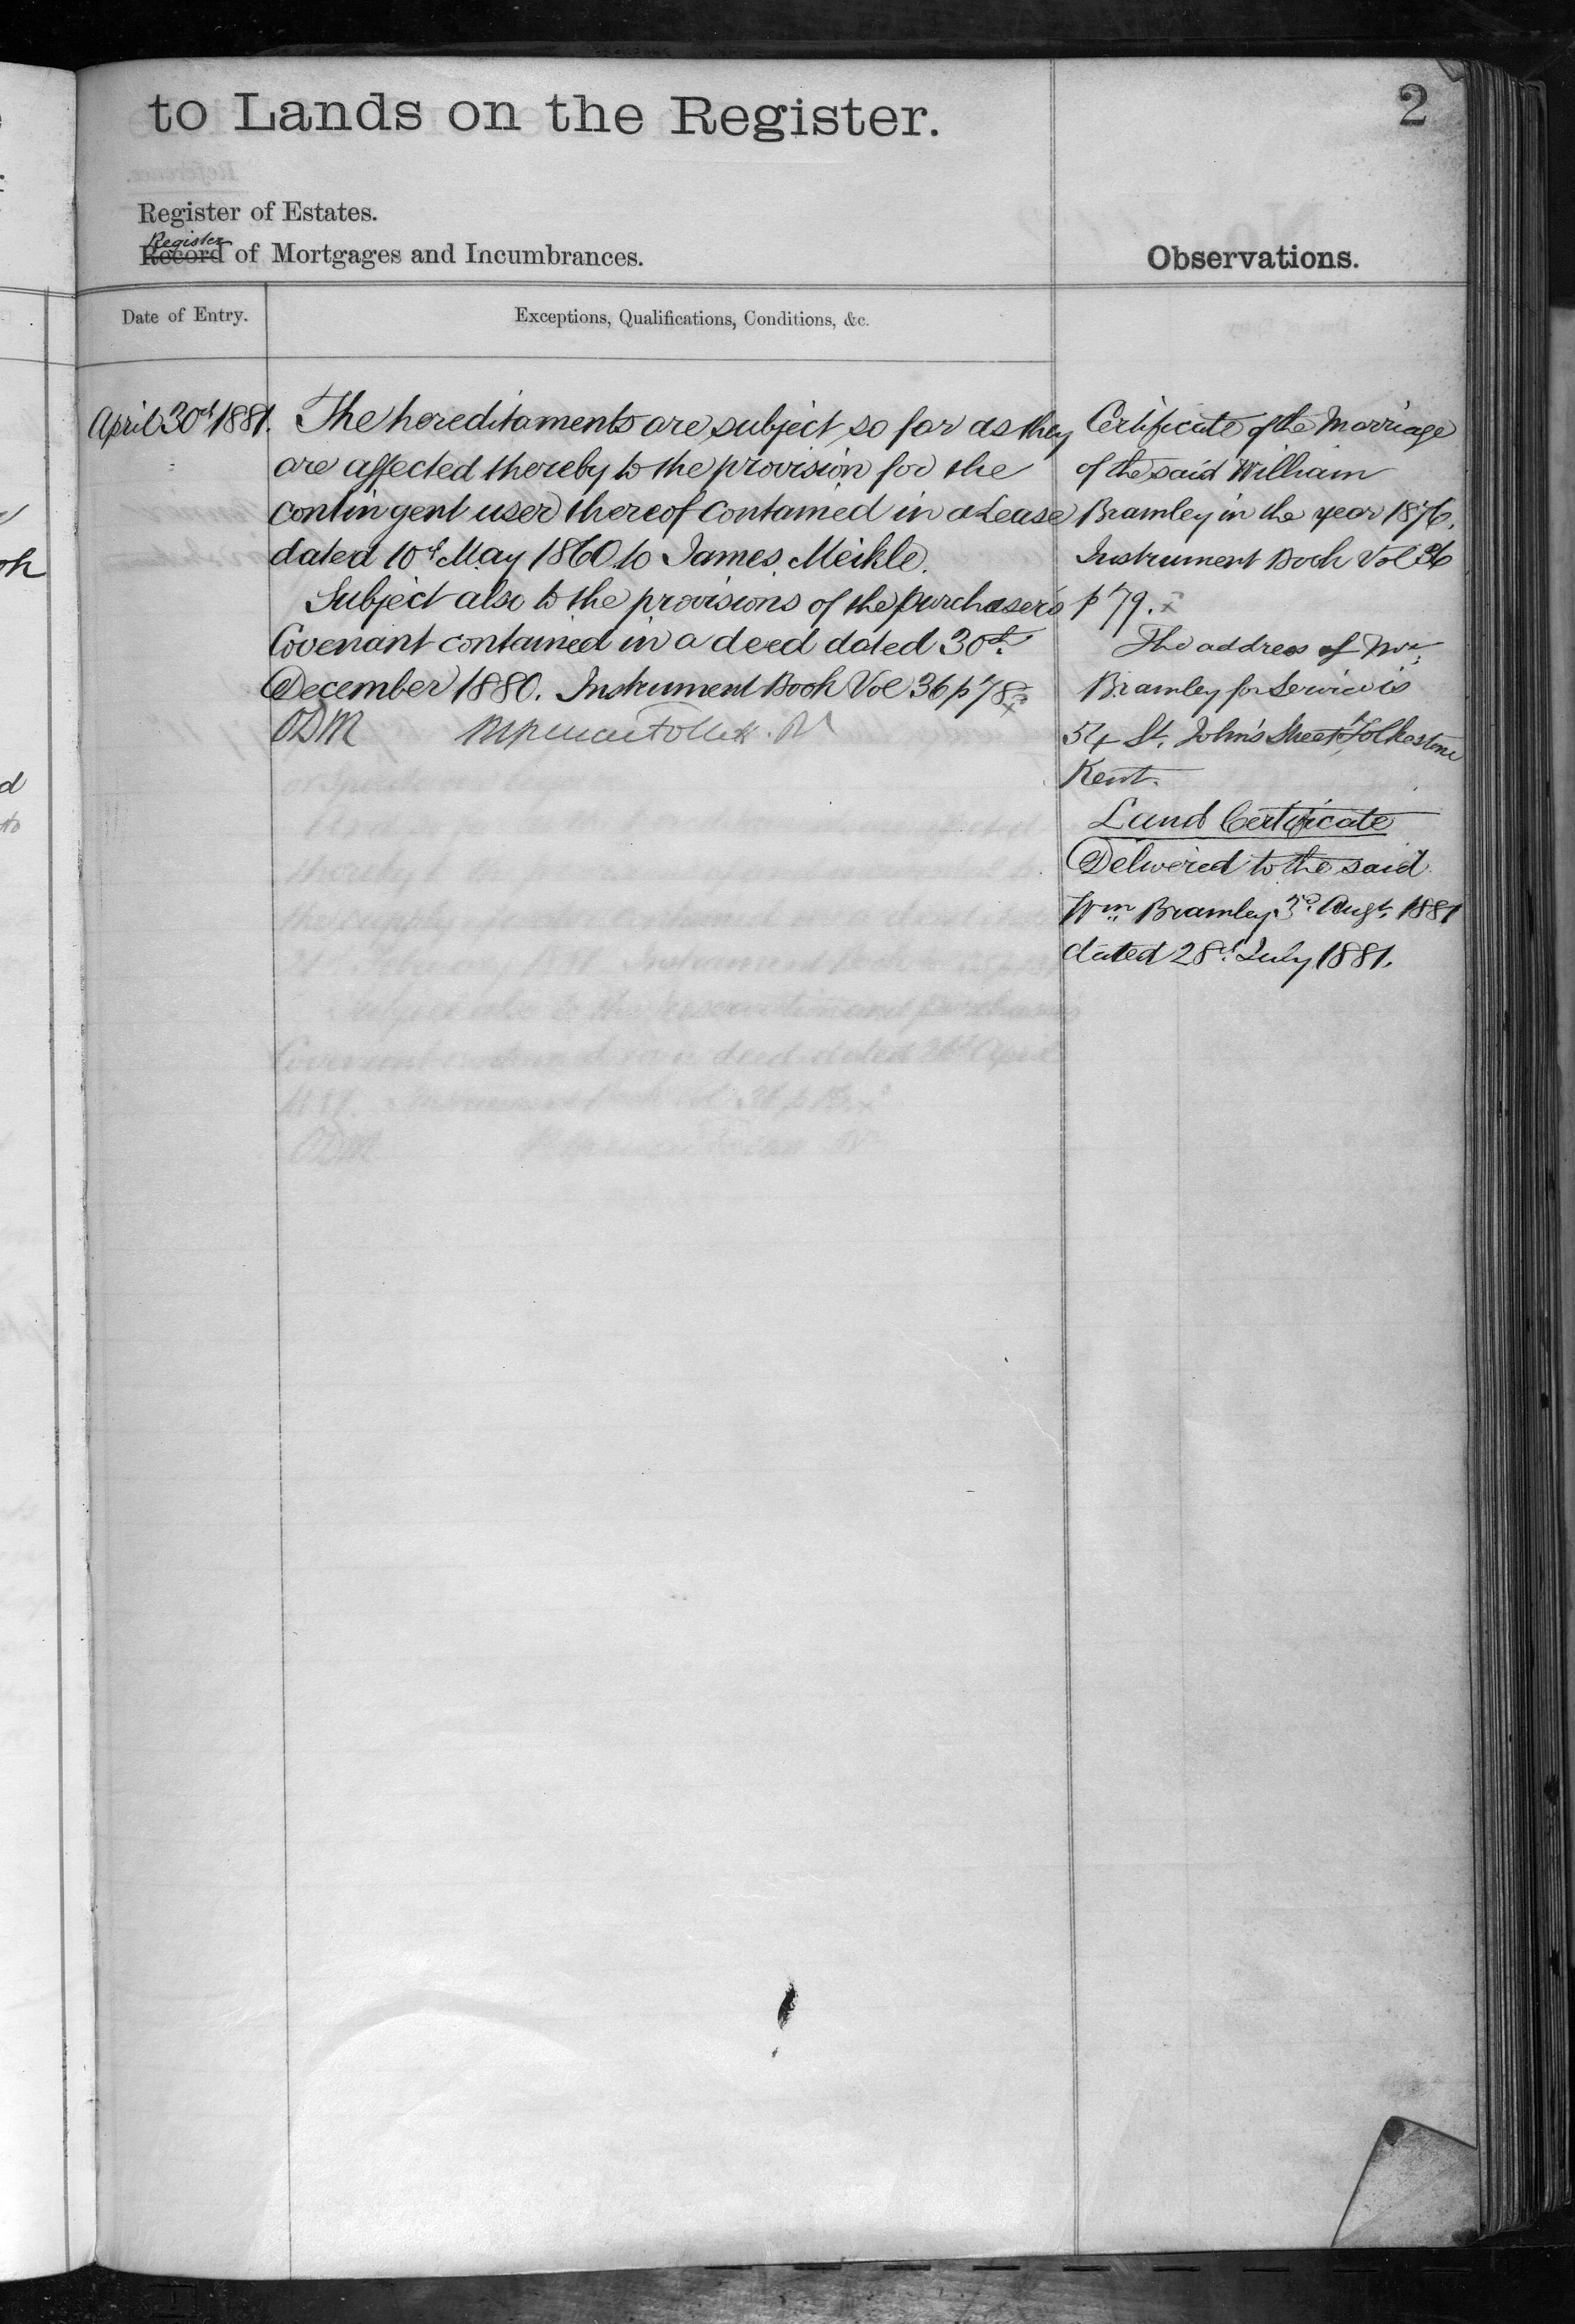 to Lands on the Register.
2
Register of Estates.
Register
Record of Mortgages and Incumbrances.
Observations.
Date of Entry.
Exceptions, Qualifications, Conditions, &c.
April 30th 1881. The hereditaments are subject so far as they
are affected thereby to the provision for the
contingent user thereof contained in a Lease
dated 10th May 1860 to James Meikle.
Subject also to the provisions of the purchaser's
Covenant contained in a deed dated 30th
December 1880. Instrument Book Vol 36 p 78 x
ODM
Certificate of the Marriage
of the said William
Bramley in the year 1876.
Instrument Book Vol 36
p 79. x
The address of Wm
Bramley for Service is
54 St. John's Street, Folkestone
Kent.
Land Certificate
Delivered to the said
Wm Bramley 3rd Augt. 1881
dated 28th July 1881.